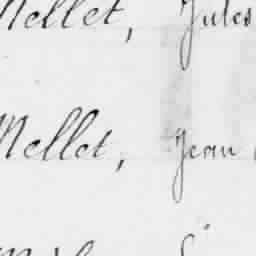 Mellet, Jules
Mellet, Jean